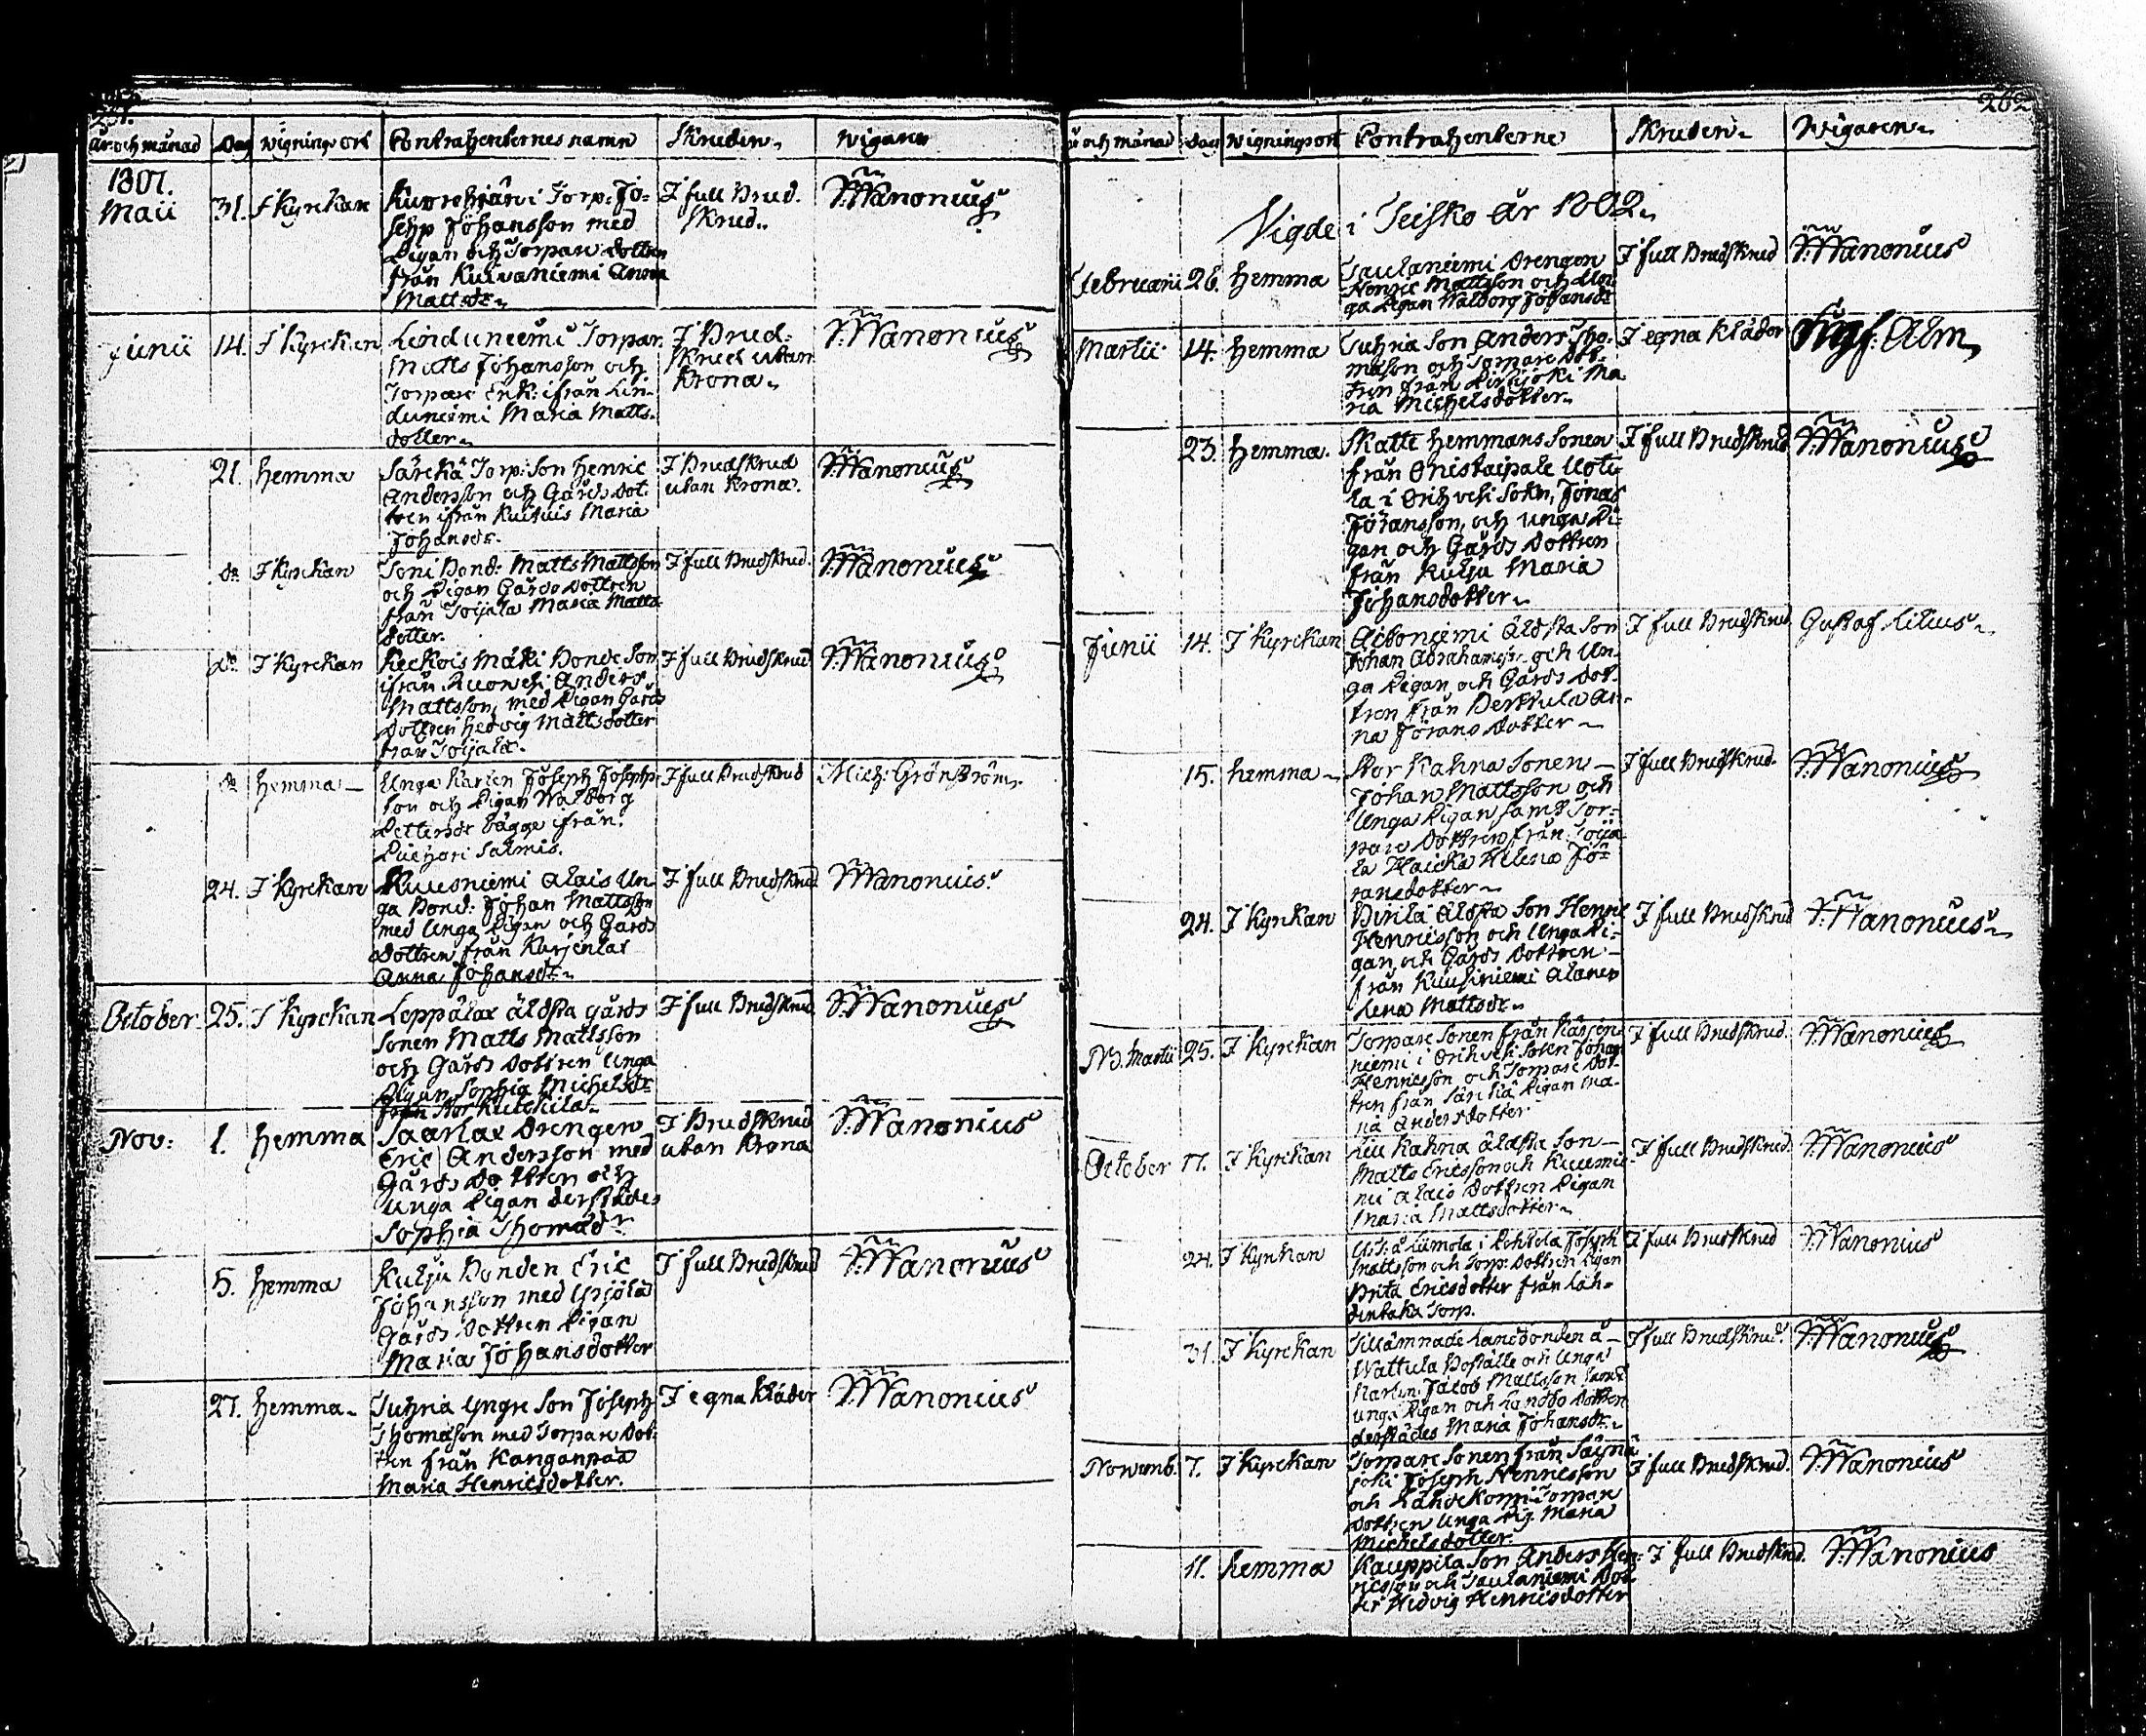 år och månad Dag wignings ort Contrahenternes namn Skruden wigaren
1801.
Maii 31. I kyrckan Torp. Jo- I full Brud. Wanonius
seph Johansson med skrud
Pigan och Torpare dottren
från Kulvaniemi Anna
Mattsdr
Junii 14. I kyrckan Linduniemi Torpar. I Brud- Wanonius
Matts Johansson och skrud utan
Torpare Enk: ifrån Lin- krona
duniemi Maria Matts-
dotter
21. hemma Särckä Torp: Son Henric I Brudskrud Wanonius
Andersson och Gårds dot- utan krona.
tren ifrån Maria
Johansdr.
do I kyrckan Bond: Matts Mattsson I full Brudskrud. Wanonius
och Pigan Gårds dottren
från Toijala Maria Matts
dotter.
do I kyrckan mäki Bonde Son I full Brudskrud Wanonius
ifrån Ruovesi Anders
Mattsson, med Pigan Gårds
dottren Hedvig Mattsdotter
från Toijala.
do hemma Unga Karlen Joseph Josephs- I full Brudskrud Mich: Grönström
son och Pigan Walborg
Pettersdr bägge ifrån
Salmis.
24. I kyrckan Kuusniemi Alais Un- I full Brudskrud Wanonius
ga Bond: Johan Mattsson
med Unga Pigan och Gårds
dottren från Karjenlax
Anna Johansdr
October 25. I kyrckan Leppälax äldsta gårds I full Brudskrud Wanonius
Sonen Matts Mattsson
och Gårds dottren Unga
Pigan Sophia Michelsdr
från Stor
Nov: 1. hemma Saarlax Drengen I Brudskrud Wanonius
Eric Andersson med utan krona
Gårds dottren och
Unga Pigan derstädes
Sophia Thomædr
5. hemma Kulju Bonden Eric I full Brudskrud Wanonius
Johansson med Yrjölä
Gårds dottren Pigan
Maria Johansdotter
27. hemma Juhria yngre Son Joseph I egna kläder Wanonius
Thomasson med Torpare dot-
tren från Kanganpää
Maria Henricsdotter.
262
år och månad dag wigningsort Contrahenterne Skruden wigaren
Vigde i Teisko år 1802
Februarii 26. hemma Taulaniemi Drengen I full Brudskrud Wanonius
Henric Mattsson och Un-
ga Pigan Walborg Johansdr
Martii 14. hemma Juhria Son Anders Tho- I egna kläder Alm
mason och Torpare dot-
tren från Ma
ria Michelsdotter
23. hemma. Skatte hemmans Sonen I full Brudskrud Wanonius
från Onistaipale
la i Orihvesi Sokn, Jonas
Johansson, och unga Pi-
gan och Gårds dottren
från Kulju Maria
Johansdotter
Junii 14. I kyrckan Aitoniemi Äldsta Son I full Brudskrud Gustaf Lilius
Johan Abrahamsson och Un-
ga Pigan och Gårds dot-
tren från Perttula An-
na Jörans dotter
15. hemma Stor Kahna Sonen I full Brudskrud. Wanonius
Johan Mattsson och
Unga Pigan samt Tor-
pare dottren från Toija
la Helena Jö-
ransdotter
24. I kyrckan Pirilä äldsta Son Henric I full Brudskrud Wanonius
Henricsson och Unga Pi-
gan och Gårds dottren
från Kuusiniemi Alanen
Lena Mattsdr
NB. Martii 25. I kyrckan Torpare Sonen från Karjen- I full Brudskrud. Wanonius
niemi i Orihvesi Soken Johan
Henricsson och Torpare dot-
tren från Särckä Pigan Ma-
ria Andersdotter
October 17. I kyrckan Lill Kahna äldsta Son I full Brudskrud. Wanonius
Matts Ericsson och Kuusnie-
mi Alais dottren Pigan
Maria Mattsdotter
24. I kyrckan Joseph I full Brudskrud Wanonius
Mattsson och Torp: dottren Pigan
Brita Ericsdotter från Läh-
Torp.
31. I kyrckan Tillämnade Landbonden å I full Brudskrud Wanonius
Wattula Boställe och Unga
Karlen Jacob Mattsson samt
unga Pigan och Landbo dottren
derstädes Maria Johansdr
Novemb. 7. I kyrckan Torpare Sonen från Säynä I full Brudskrud. Wanonius
joki Joseph Henricsson
och Lähdekorpi Torpare
dottren Unga Pig. Maria
Michelsdotter.
11. hemma Kauppila Son Anders Hen- I full Brudskrud. Wanonius
ricsson och Taulaniemi Dot
ter Hedvig Henricsdotter